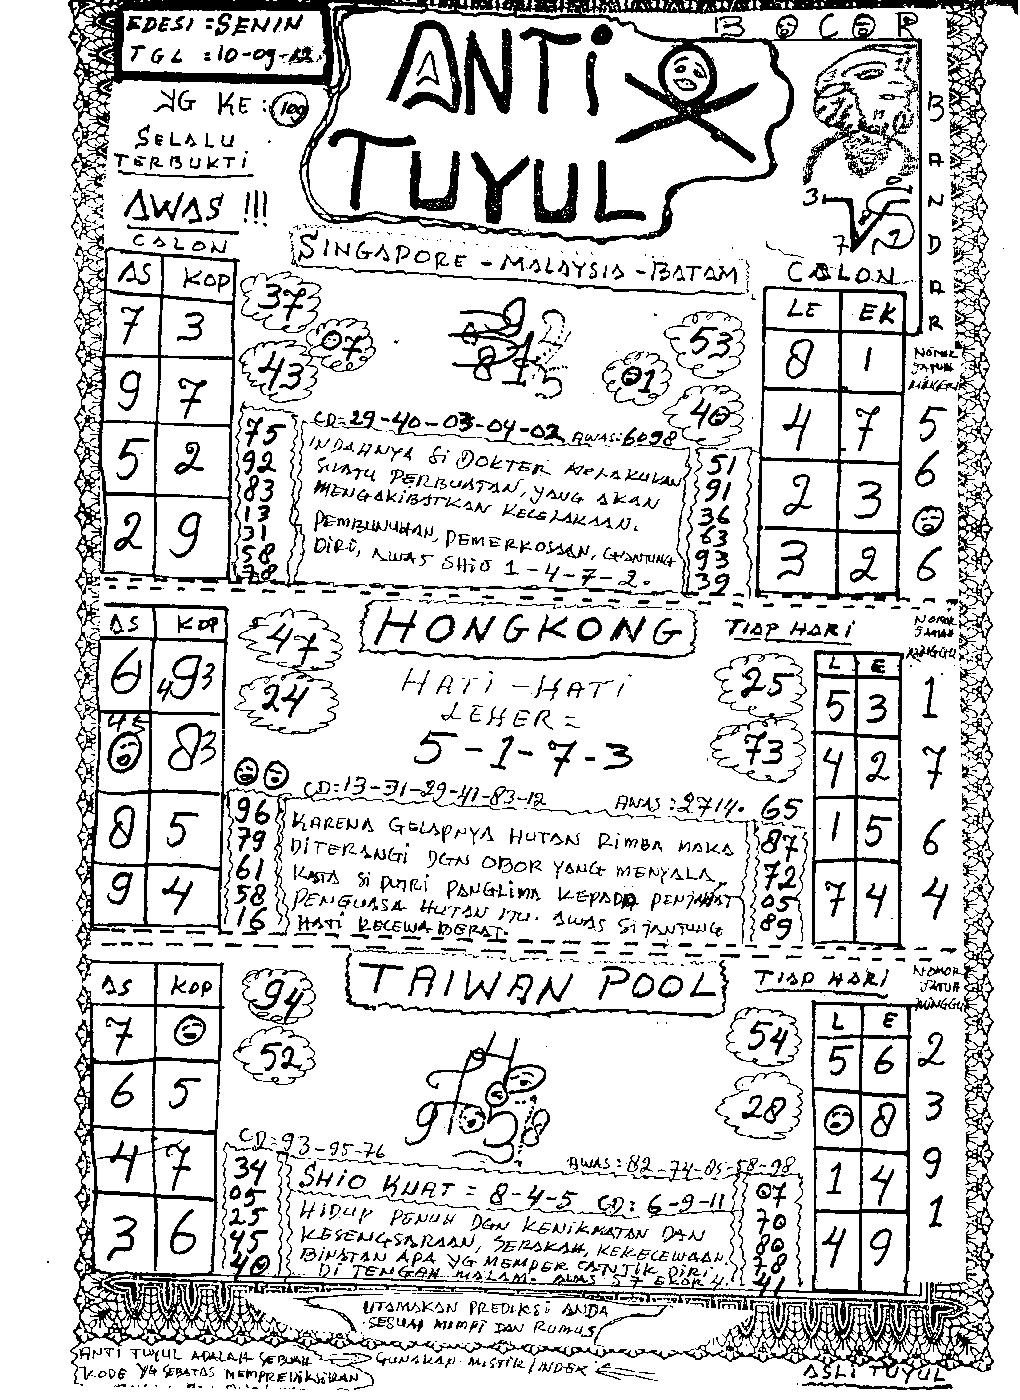 EDESI : SENIN
TGL : 10-09-12
YG KE : 100
SELALU
TERBUKTI
AWAS !!!
ANTI
TUYUL
BOCOR
BANDAR
3
7
SINGAPORE - MALAYSIA - BATAM
CALON
AS KOP
7 3
9 7
5 2
2 9
37
07
43
75
92
83
13
31
58
78
53
01
40
CD=29-40-03-04-02 AWAS:6098
INDAHNYA SI DOKTER MELAKUKAN
SUATU PERBUATAN, YANG AKAN
MENGAKIBATKAN KECELAKAAN.
PEMBUNUHAN, PEMERKOSAAN, GANTUNG
DIRI, AWAS SHIO 1-4-7-2.
51
91
36
63
93
39
CALON
LE EK
8 1
4 7
2 3
3 2
NOMOR
JATUH
MINGGU
5
6
0
6
AS KOP
6 93
8 5
9 4
47
24
00
96
79
61
58
16
HONGKONG
TIAP HARI
HATI-HATI
LEHER =
5-1-7-3
25
73
CD=13-31-29-41-83-12 AWAS:2714.
KARENA GELAPNYA HUTAN RIMBA MAKA
DITERANGI DGN OBOR YANG MENYALA,
KATA SI PUTRI PANGLIMA KEPADA PENJAHAT
PENGUASA HUTAN ITU. AWAS SI JANTUNG
HATI KECEWA BERAT.
65
87
72
05
89
L E
5 3
4 2
1 5
7 4
NOMOR
JATUH
MINGGU
1
7
6
4
AS KOP
7 0
6 5
4 7
3 6
94
52
34
05
25
45
40
TAIWAN POOL
TIAP HARI
54
28
CD=93-95-76
AWAS:82-74-05-58-98
SHIO KUAT = 8-4-5 CD: 6-9-11
HIDUP PENUH DGN KENIKMATAN DAN
KESENGSARAAN, SERAKAH, KEKECEWAAN.
BINATAN APA YG MEMPER CANTIK DIRI
DI TENGAH MALAM. AWAS 57 EKOR 4.
07
70
80
78
41
L E
5 6
0 8
1 4
4 9
NOMOR
JATUH
MINGGU
2
3
9
1
UTAMAKAN PREDIKSI ANDA
SESUAI MIMPI DAN RUMUS
GUNAKAN MISTIK INDEK
ANTI TUYUL ADALAH SEBUAH
KODE YG SEBATAS MEMPREDIKSIKAN
ASLI TUYUL